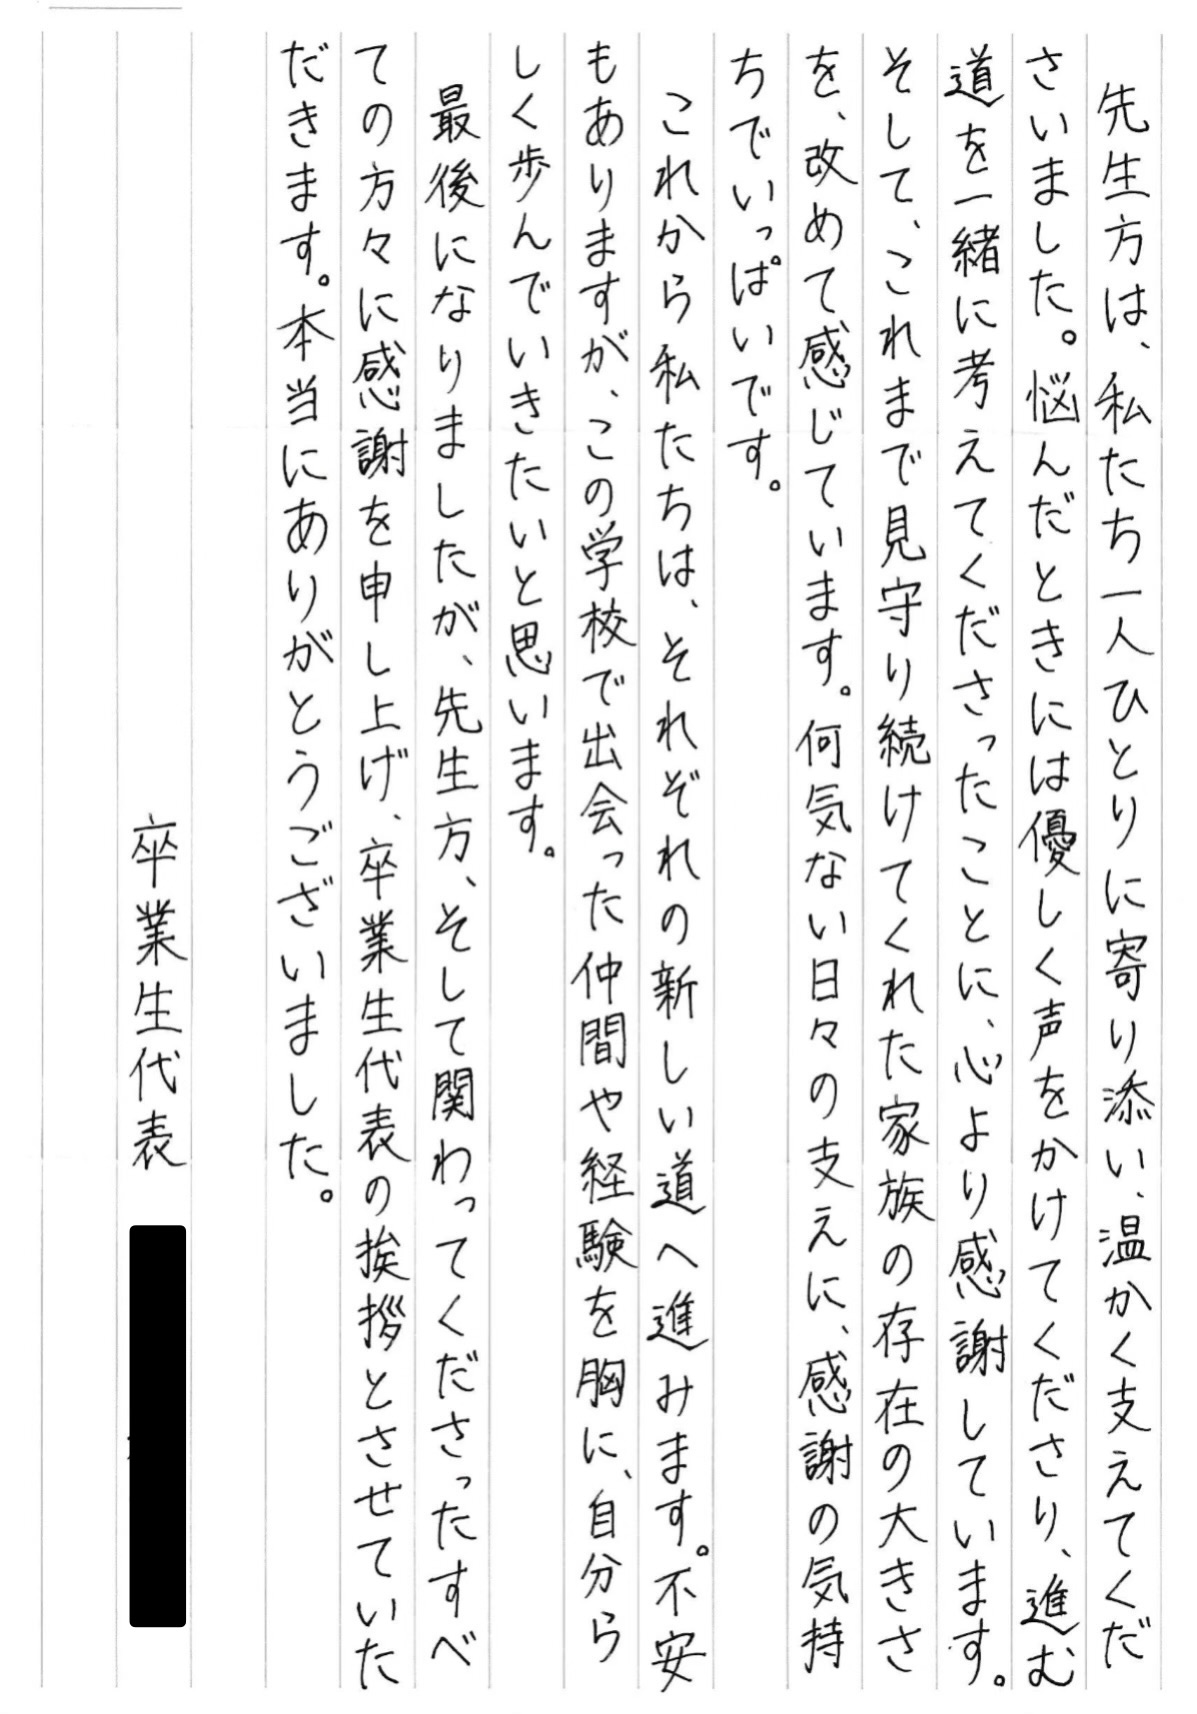 先生方は、私たち一人ひとりに寄り添い、温かく支えてくだ
さいました。悩んだときには優しく声をかけてくださり、進む
道を一緒に考えてくださったことに、心より感謝しています。
そして、これまで見守り続けてくれた家族の存在の大きさ
を、改めて感じています。何気ない日々の支えに、感謝の気持
ちでいっぱいです。
これから私たちは、それぞれの新しい道へ進みます。不安
もありますが、この学校で出会った仲間や経験を胸に、自分ら
しく歩んでいきたいと思います。
最後になりましたが、先生方、そして関わってくださったすべ
ての方々に感謝を申し上げ、卒業生代表の挨拶とさせていた
だきます。本当にありがとうございました。
卒業生代表